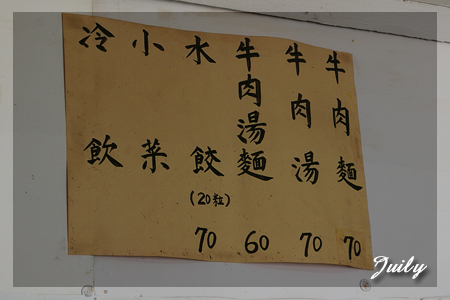 牛肉麵 70
牛肉湯 70
牛肉湯麵 60
水餃 (20粒) 70
小菜
冷飲
Juily